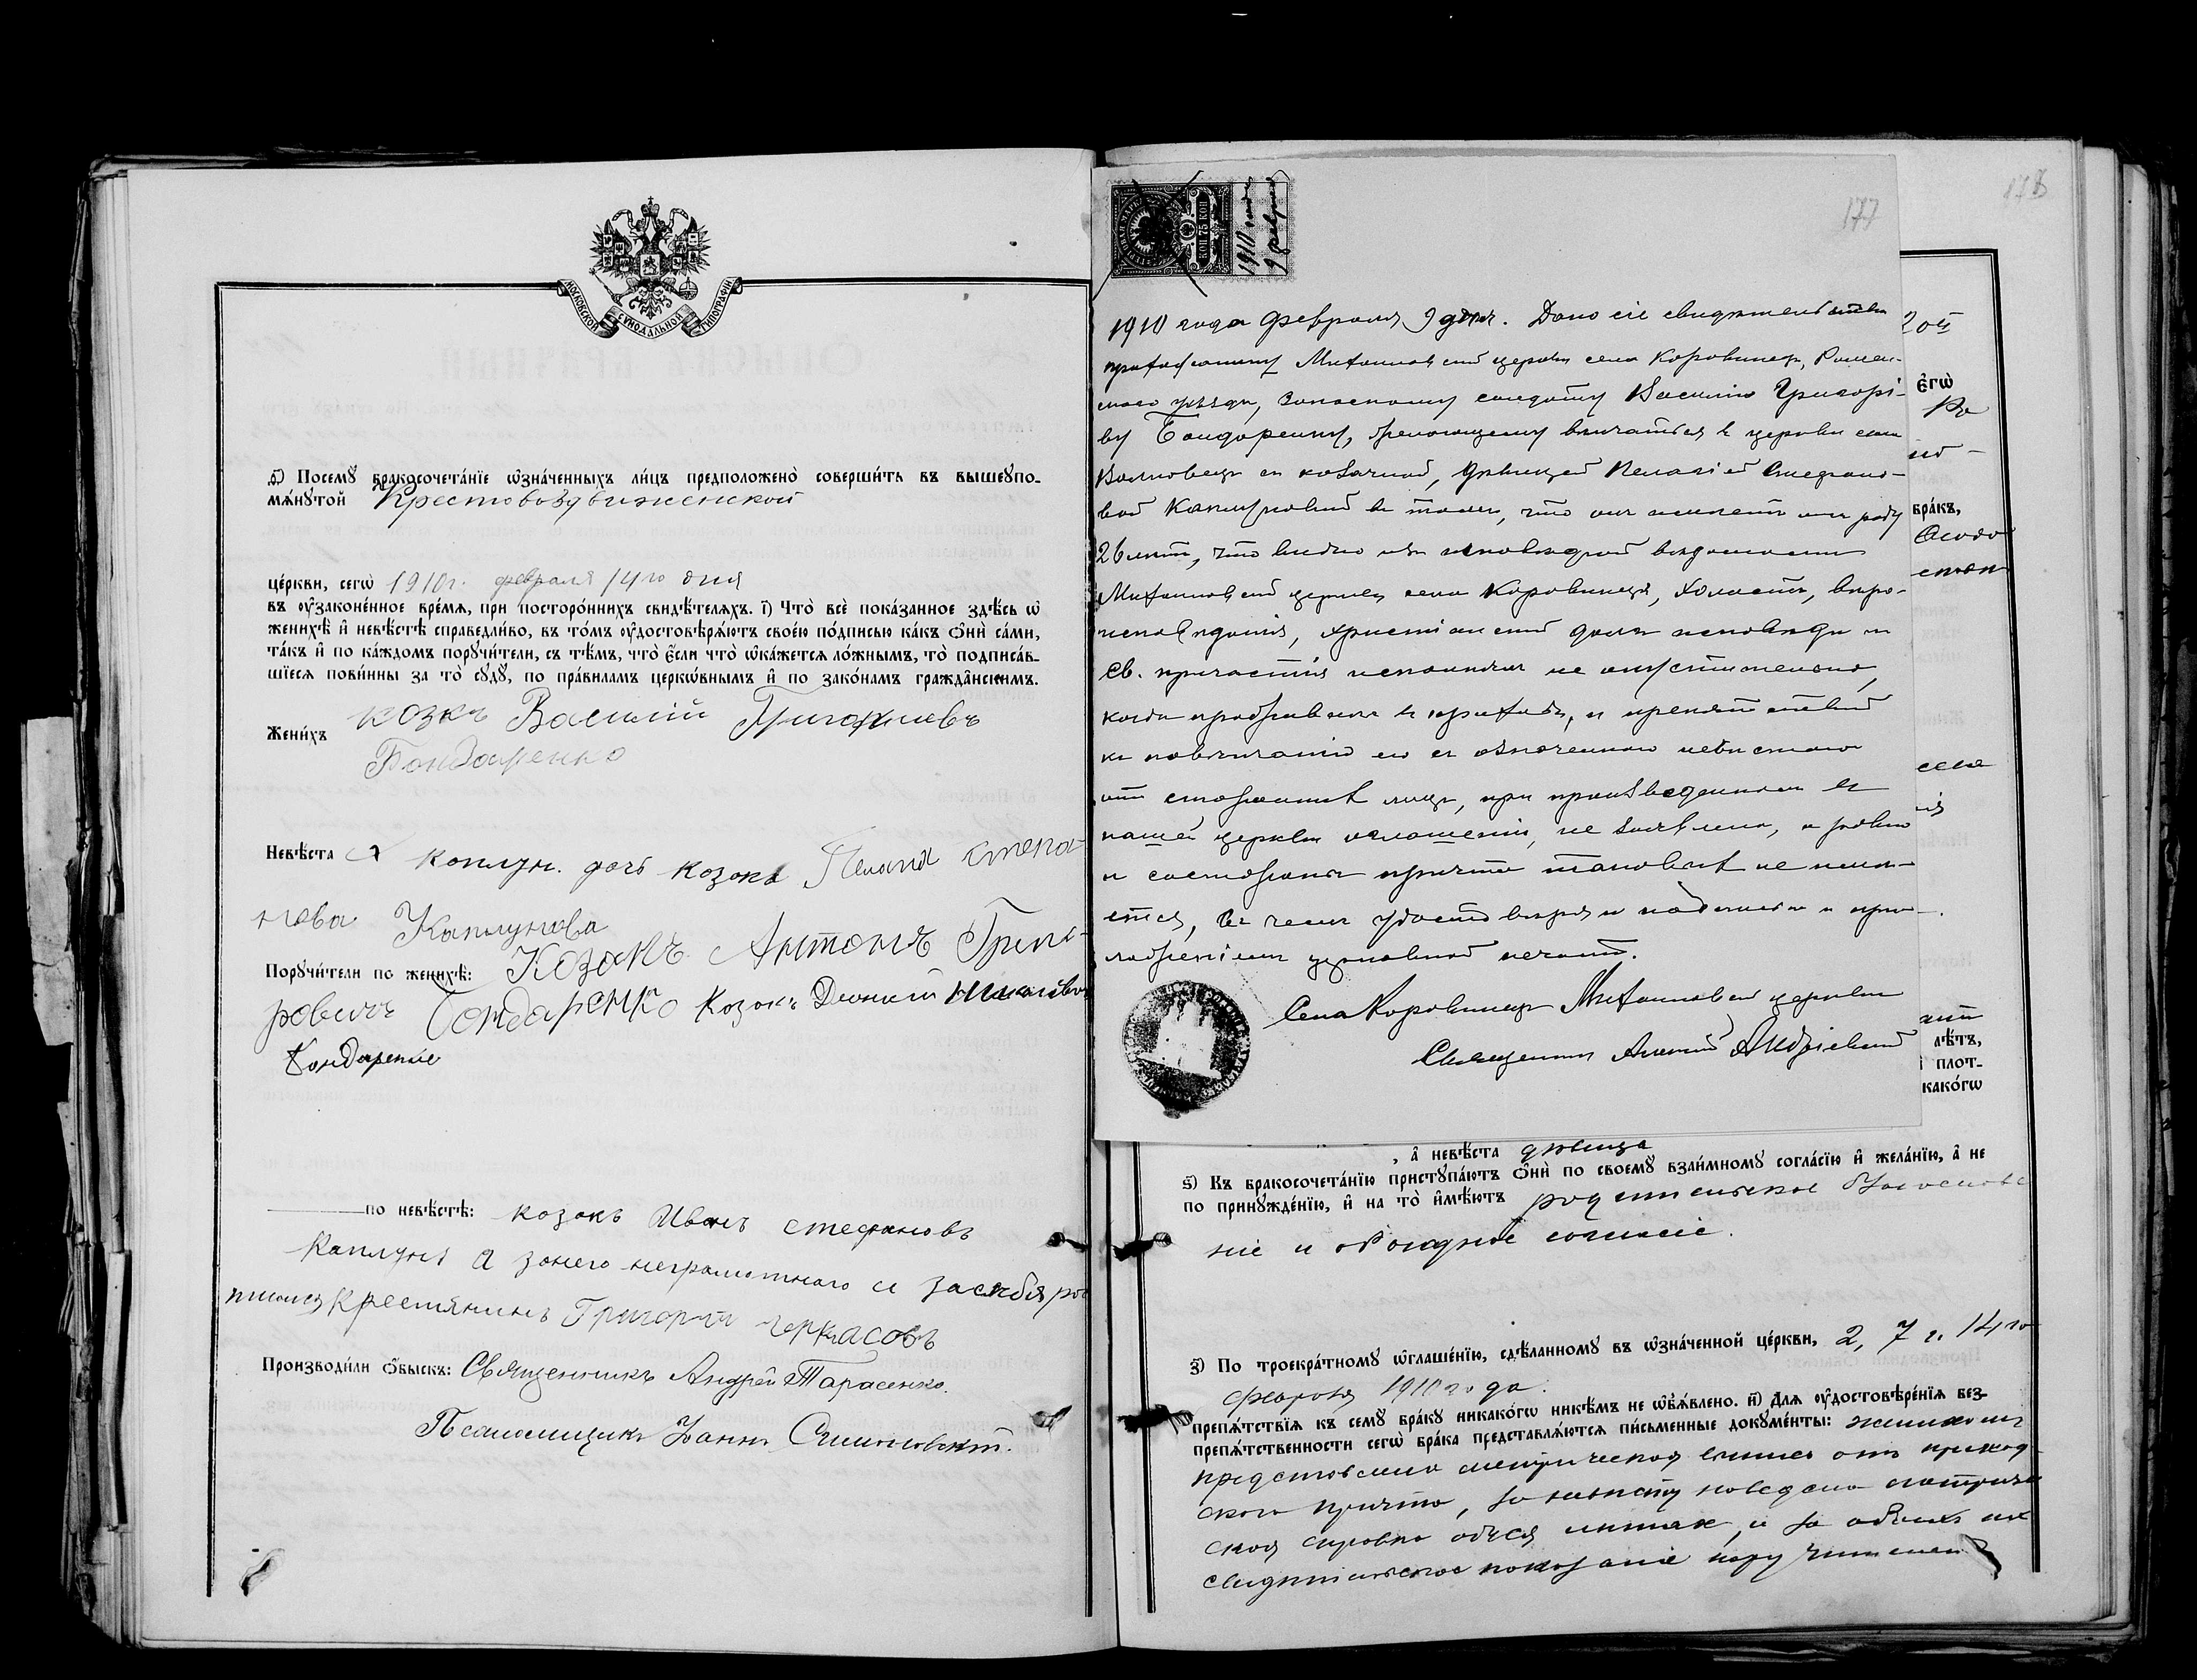 МОСКОВСКОЙ СѴНОДАЛЬНОЙ ТИПОГРАФІИ
Ѳ҃) Посемꙋ̀ бракосочета́нїе ѡ҆зна́ченныхъ ли́цъ предположено̀ соверши́ть въ вышеꙋпо-
мѧ́нꙋтой Крестовоздвиженской
це́ркви, сегѡ̀ 1910 г. февраля 14го дня
въ ᲂу҆зако́ненное вре́мѧ, при посторо́ннихъ свидѣ́телѧхъ. і҃) Что̀ всѐ пока́занное здѣ́сь ѡ҆
женихѣ̀ и҆ невѣ́стѣ справедли́во, въ то́мъ ᲂу҆достовѣрѧ́ютъ свое́ю по́дписью ка́къ ѻ҆нѝ са́ми,
та́къ и҆ по ка́ждомъ порꙋчи́тели, съ тѣ́мъ, что̀ є҆́сли что̀ ѡ҆ка́жетсѧ ло́жнымъ, то̀ подписа́в-
шїесѧ пови́нны за то̀ сꙋдꙋ̀, по пра́виламъ церко́внымъ и҆ по зако́намъ гражда́нскимъ.
Жени́хъ козкъ Василій Григориевъ
Бондаренко
Невѣ́ста Каплун. дочь козака Пелагія Степа-
нова Каплунова
Порꙋчи́тели по женихѣ̀: Козакъ Антонъ Григо-
ровичъ Бондаренко Козакъ Николаевъ
Бондаренко
по невѣ́стѣ: козакъ Иванъ Стефановъ
Каплунъ а занего неграмотнаго и засебя рос
писался Крестянинъ Григорій Черкасовъ
Производи́ли ѻ҆́быскъ: Священникъ Андрей Тарасенко.
Псаломщикъ Іоаннъ
178
177
75 КОП
1910 года
9 февраля
1910 года Февраля 9 дня. Дано сіе свидѣтельство
прихожанину Михайловской церкви села Коровинецъ, Ромен-
скаго уѣзда, запасному солдату Василію Григорі-
ву Бондаренку, желающему вѣнчаться въ церкви села
Волковецъ съ козачкой, дѣвицей Пелагіей Стефано-
вой Каплуновой въ томъ, что онъ имѣетъ отъ роду
26 лѣтъ, что видно изъ исповѣдной вѣдомости
Михайловской церкви села Коровинецъ, холостъ, вѣро-
исповѣданія, христіанскій долгъ исповѣди и
Св. причастія исполнялъ не опустительно,
когда проживалъ въ приходѣ, и препятствій
къ повѣнчанію его съ означенною невѣстою
отъ стороннихъ лицъ, при произведенномъ въ
нашей церкви оглашеніи, не заявлено, и равно
и со стороны причта таковыхъ не имѣ-
ется, въ чемъ удостовѣряю подписью и при-
ложеніемъ церковной печати.
Села Коровинецъ Михайловской церкви
Священникъ
є҆гѡ̀
бра́къ,
лѣ́тъ,
плот-
како́гѡ
, а҆ невѣ́ста дѣвица
ѕ҃) Къ бракосочета́нїю пристꙋпа́ютъ ѻ҆нѝ по своемꙋ̀ взаи́мномꙋ согла́сїю и҆ жела́нїю, а҆ не
по принꙋжде́нїю, и҆ на то̀ и҆мѣ́ютъ родительское благослове
ніе и обоюдное согласіе.
з҃) По троекра́тномꙋ ѡ҆глаше́нїю, сдѣ́ланномꙋ въ ѡ҆зна́ченной це́ркви, 2, 7 и 14го
февраля 1910 года.
препѧ́тствїѧ къ семꙋ̀ бра́кꙋ никако́гѡ никѣ́мъ не ѡ҆б̾ѧ́влено. и҃) Длѧ ᲂу҆достовѣре́нїѧ без-
препѧ́тственности сегѡ̀ бра́ка представлѧ́ютсѧ пи́сьменные докꙋме́нты: женихомъ
представлена метрическая выпись отъ приход-
скаго причта, за невѣсту наведена метриче-
ская справка о лѣтахъ, и за обоихъ ихъ
свидѣтельское показаніе поручителей